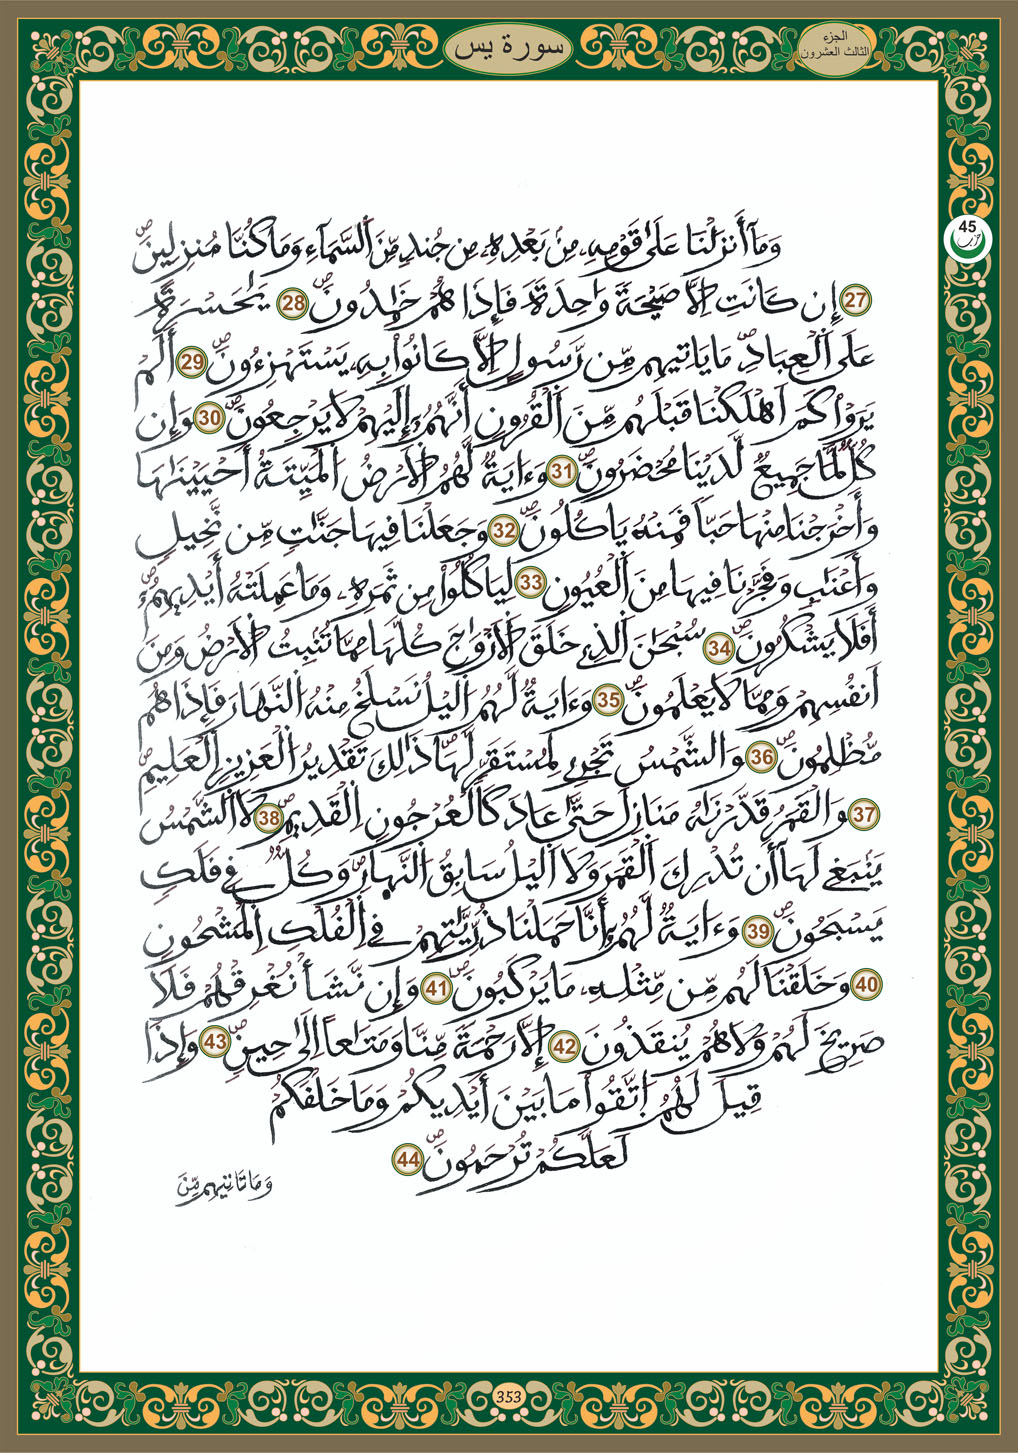 الجزء
الثالث العشرون
سورة يس
45
حزب
وَمَآ أَنزَلْنَا عَلَىٰ قَوْمِهِۦ مِنۢ بَعْدِهِۦ مِن جُندٍ مِّنَ اَ۬لسَّمَآءِ وَمَا كُنَّا مُنزِلِينَۖ
27 إِن كَانَتِ اِلَّا صَيْحَةً وَٰحِدَةً فَإِذَا هُمْ خَٰمِدُونَۖ 28 يَٰحَسْرَةً
عَلَى اَ۬لْعِبَادِۖ مَا يَاتِيهِم مِّن رَّسُولٍ اِلَّا كَانُوا۟ بِهِۦ يَسْتَهْزِءُونَۖ 29 أَلَمْ
يَرَوْا۟ كَمَ اَهْلَكْنَا قَبْلَهُم مِّنَ اَ۬لْقُرُونِ أَنَّهُمُۥٓ إِلَيْهِمْ لَا يَرْجِعُونَۖ 30 وَإِن
كُلٌّ لَّمَا جَمِيعٌ لَّدَيْنَا مُحْضَرُونَۖ 31 وَءَايَةٌ لَّهُمُ اُ۬لَارْضُ اُ۬لْمَيِّتَةُ أَحْيَيْنَٰهَا
وَأَخْرَجْنَا مِنْهَا حَبّاً فَمِنْهُ يَاكُلُونَۖ 32 وَجَعَلْنَا فِيهَا جَنَّٰتٍ مِّن نَّخِيلٍ
وَأَعْنَٰبٍ وَفَجَّرْنَا فِيهَا مِنَ اَ۬لْعُيُونِ 33 لِيَاكُلُوا۟ مِن ثَمَرِهِۦ وَمَا عَمِلَتْهُ أَيْدِيهِمُۥٓ
أَفَلَا يَشْكُرُونَۖ 34 سُبْحَٰنَ اَ۬لذِے خَلَقَ اَ۬لَازْوَٰجَ كُلَّهَا مِمَّا تُنۢبِتُ اُ۬لَارْضُ وَمِنَ
اَنفُسِهِمْ وَمِمَّا لَا يَعْلَمُونَۖ 35 وَءَايَةٌ لَّهُمُ اُ۬ليْلُ نَسْلَخُ مِنْهُ اُ۬لنَّهَارَ فَإِذَا هُم
مُّظْلِمُونَۖ 36 وَالشَّمْسُ تَجْرِے لِمُسْتَقَرٍّ لَّهَاۖ ذَٰلِكَ تَقْدِيرُ اُ۬لْعَزِيزِ اِ۬لْعَلِيمِۖ
37 وَالْقَمَرُ قَدَّرْنَٰهُ مَنَازِلَ حَتَّىٰ عَادَ كَالْعُرْجُونِ اِ۬لْقَدِيمِۖ 38 لَا اَ۬لشَّمْسُ
يَنۢبَغِے لَهَآ أَن تُدْرِكَ اَ۬لْقَمَرَ وَلَا اَ۬ليْلُ سَابِقُ اُ۬لنَّهَارِۖ وَكُلٌّ فِے فَلَكٍ
يَسْبَحُونَۖ 39 وَءَايَةٌ لَّهُمُۥٓ أَنَّا حَمَلْنَا ذُرِّيَّٰتِهِمْ فِے اِ۬لْفُلْكِ اِ۬لْمَشْحُونِ
40 وَخَلَقْنَا لَهُم مِّن مِّثْلِهِۦ مَا يَرْكَبُونَۖ 41 وَإِن نَّشَأْ نُغْرِقْهُمْ فَلَا
صَرِيخَ لَهُمْ وَلَا هُمْ يُنقَذُونَ 42 إِلَّا رَحْمَةً مِّنَّا وَمَتَٰعاً اِلَىٰ حِينٍۖ 43 وَإِذَا
قِيلَ لَهُمُ اُ۪تَّقُوا۟ مَا بَيْنَ أَيْدِيكُمْ وَمَا خَلْفَكُمْ
لَعَلَّكُمْ تُرْحَمُونَۖ 44
وَمَا تَاتِيهِم مِّنَ
353